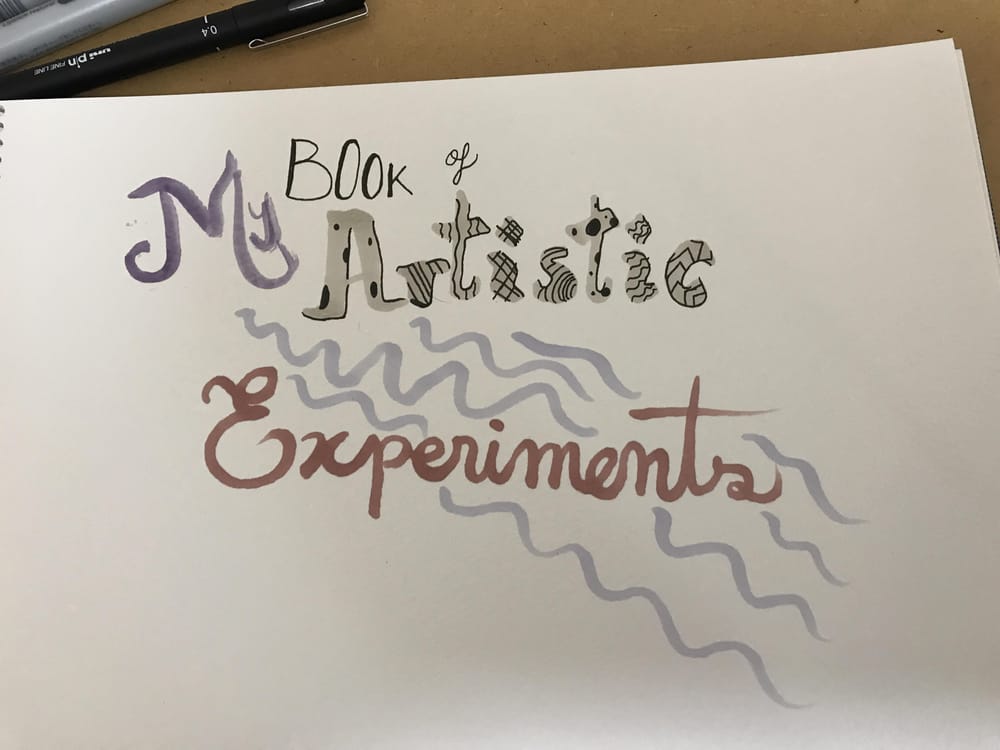 uni pin FINE LINE 0.4
My BOOK of
Artistic
Experiments